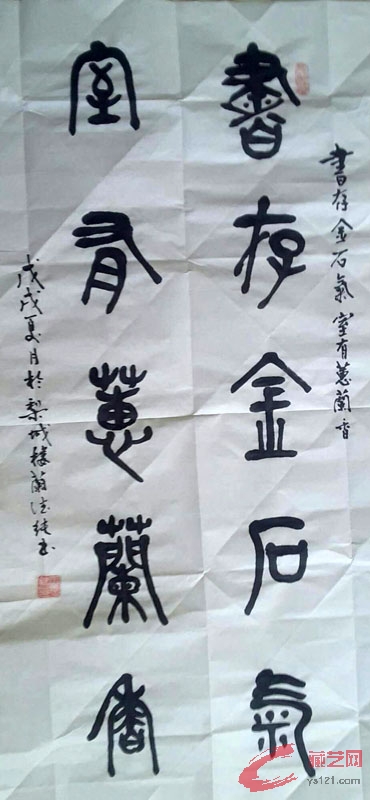 書存金石氣室有蕙蘭香
書存金石氣
室有蕙蘭香
戊戌夏月於梨城樓蘭法純書
藏艺网
ys121.com